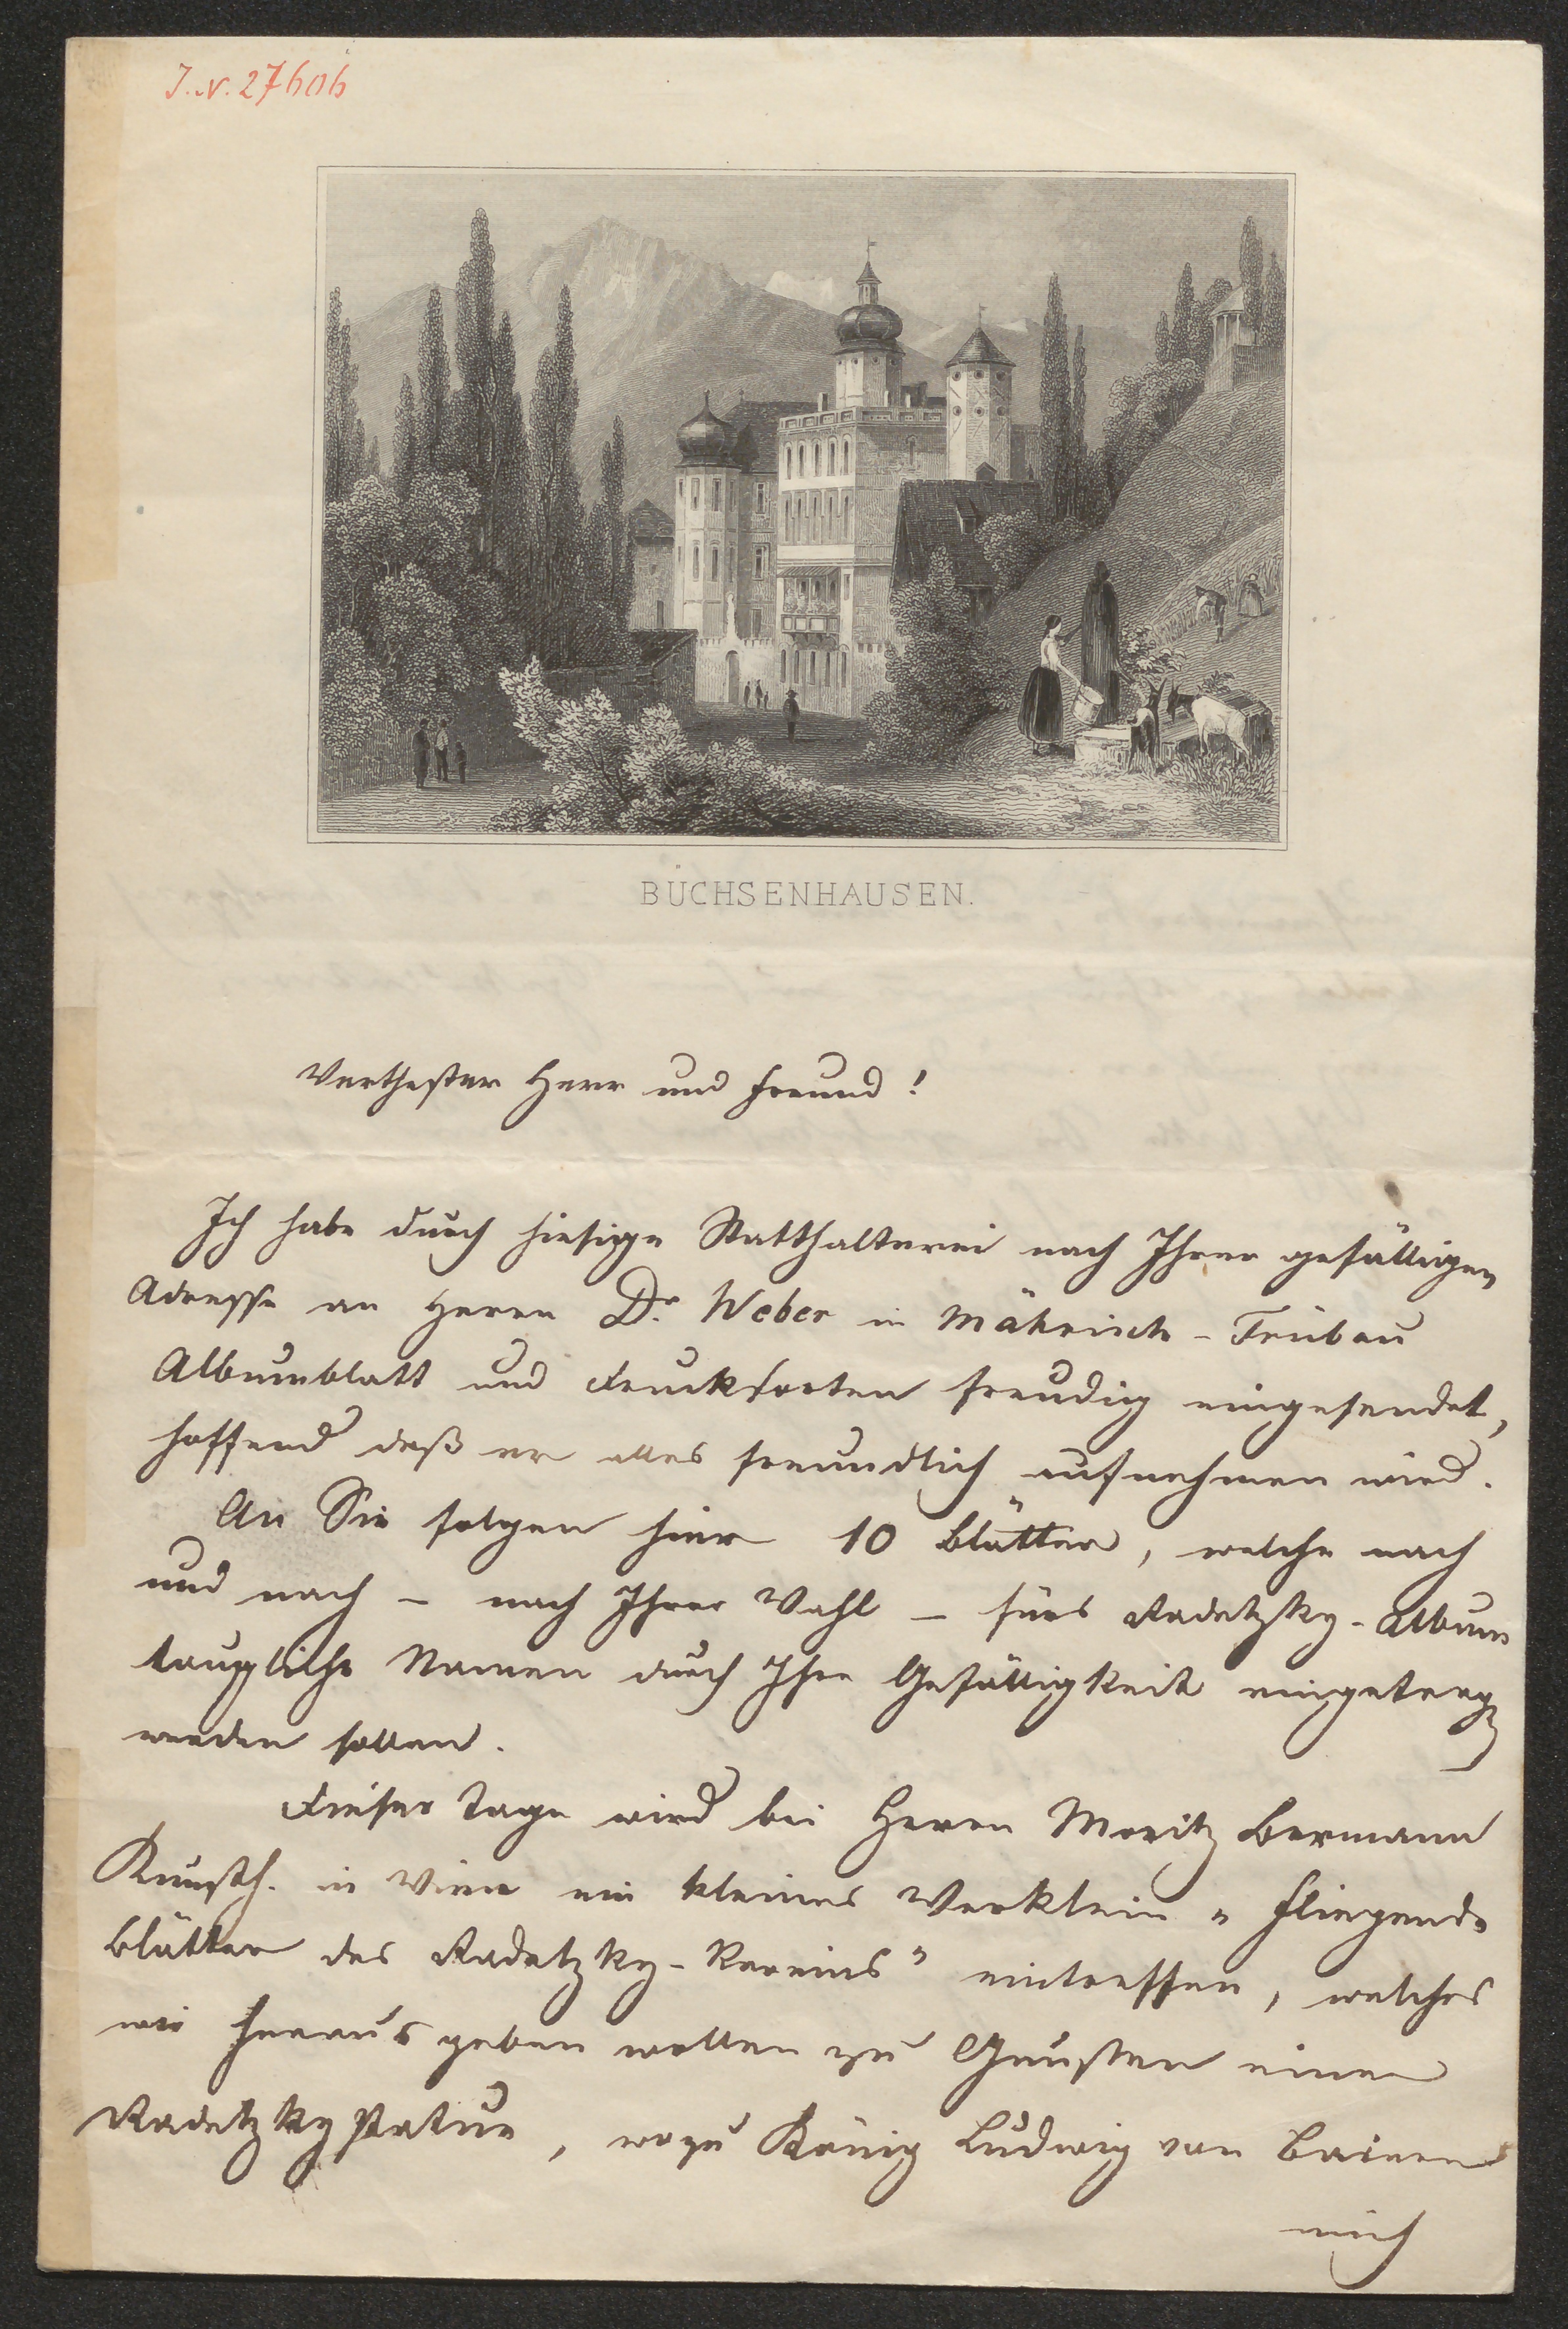 I.N. 27606
BÜCHSENHAUSEN.
Werthester Herr und Freund!
Ich habe durch hiesige Statthalterei nach Ihrer gefälligen
Adresse an Herrn Dr. Weber in Mährisch-Trübau
Albumblatt und Drucksorten freudig eingesendet,
hoffend daß er alles freundlich aufnehmen wird.
An Sie folgen hier 10 Blätter, welche nach
und nach – nach Ihrer Wahl – fürs Radetzky-Album
taugliche Namen durch Ihre Gefälligkeit eingetragen
werden sollen.
Dieser Tage wird bei Herrn Moritz Bermann
Kunsth. in Wien ein kleines Werklein „Fliegende
Blätter des Radetzky-Vereins" eintreffen, welches
wir herausgeben wollen zu Gunsten einer
Radetzkystatue, wozu König Ludwig von Baiern
mich